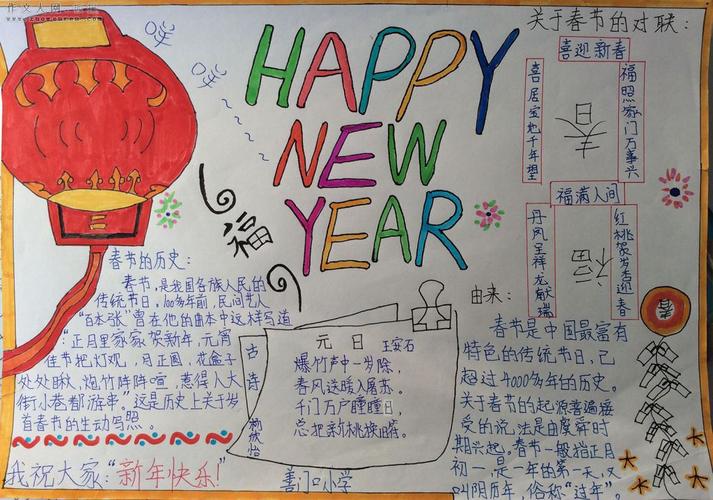 作文人网
www.zuowenren.com
HAPPY
NEW
YEAR
福
关于春节的对联:
喜迎新春
喜居宝地千年旺
福照家门万事兴
春
福满人间
丹凤呈祥龙献瑞
红桃贺岁杏迎春
福
春节的历史:
春节,是我国各族人民的
传统节日。100多年前,民间艺人
"百本张"曾在他的曲本中这样写道
:"正月里家家贺新年,元宵
佳节把灯观,月正圆,花盒子
处处瞅,炮竹阵阵喧,惹得人大
街小巷都游串。"这是历史上关于岁
首春节的生动写照。
我祝大家:"新年快乐!"
古诗
元日 王安石
爆竹声中一岁除,
春风送暖入屠苏。
千门万户瞳瞳日,
总把新桃换旧符。
善门口小学
由来:
春节是中国最富有
特色的传统节日,已
超过4000多年的历史。
关于春节的起源普遍接
受的说法是由虞舜时
期兴起。春节一般指正月
初一,是一年的第一天,又
叫阴历年,俗称"过年"
春